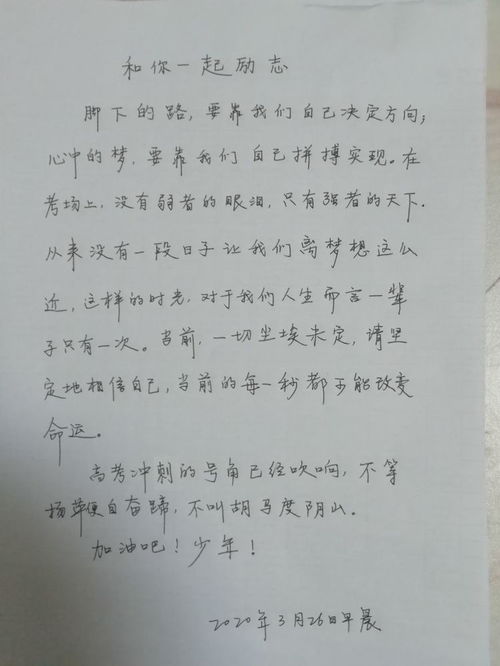 和你一起励志
脚下的路，要靠我们自己决定方向；
心中的梦，要靠我们自己拼搏实现。在
考场上，没有弱者的眼泪，只有强者的天下.
从来没有一段日子让我们离梦想这么
近，这样的时光，对于我们人生而言一辈
子只有一次。当前，一切尘埃未定，请坚
定地相信自己，当前的每一秒都可能改变
命运。
高考冲刺的号角已经吹响，不等
扬鞭便自奋蹄，不叫胡马度阴山。
加油吧！少年！
2020年3月26日早晨